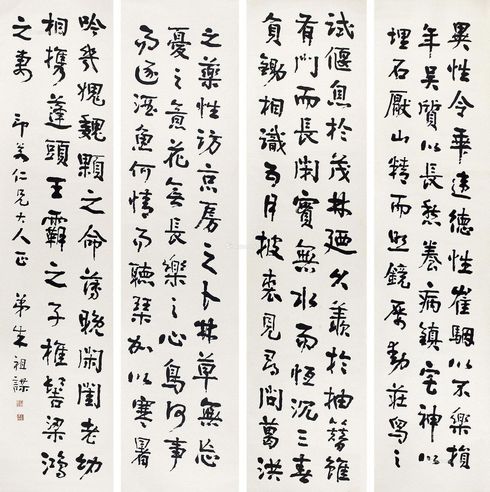 異性令乖違德性崔駰以不樂損
年吳質以長愁養病鎮宅神以
埋石厭山精而照鏡屢動莊舄之
試偃魚於茂林廼久羨於抽簪雖
有門而長閉實無水而恆沉三春
負鋤相識五月披裘見尋問葛洪
之藥性訪京房之卜林草無忘
憂之意花無長樂之心鳥何事
而逐酒魚何情而聽琴加以寒暑
吟幾愧魏顆之命薄晚閑閨老幼
相攜蓬頭王霸之子椎髻梁鴻
之妻 仁兄大人正 弟朱祖謀